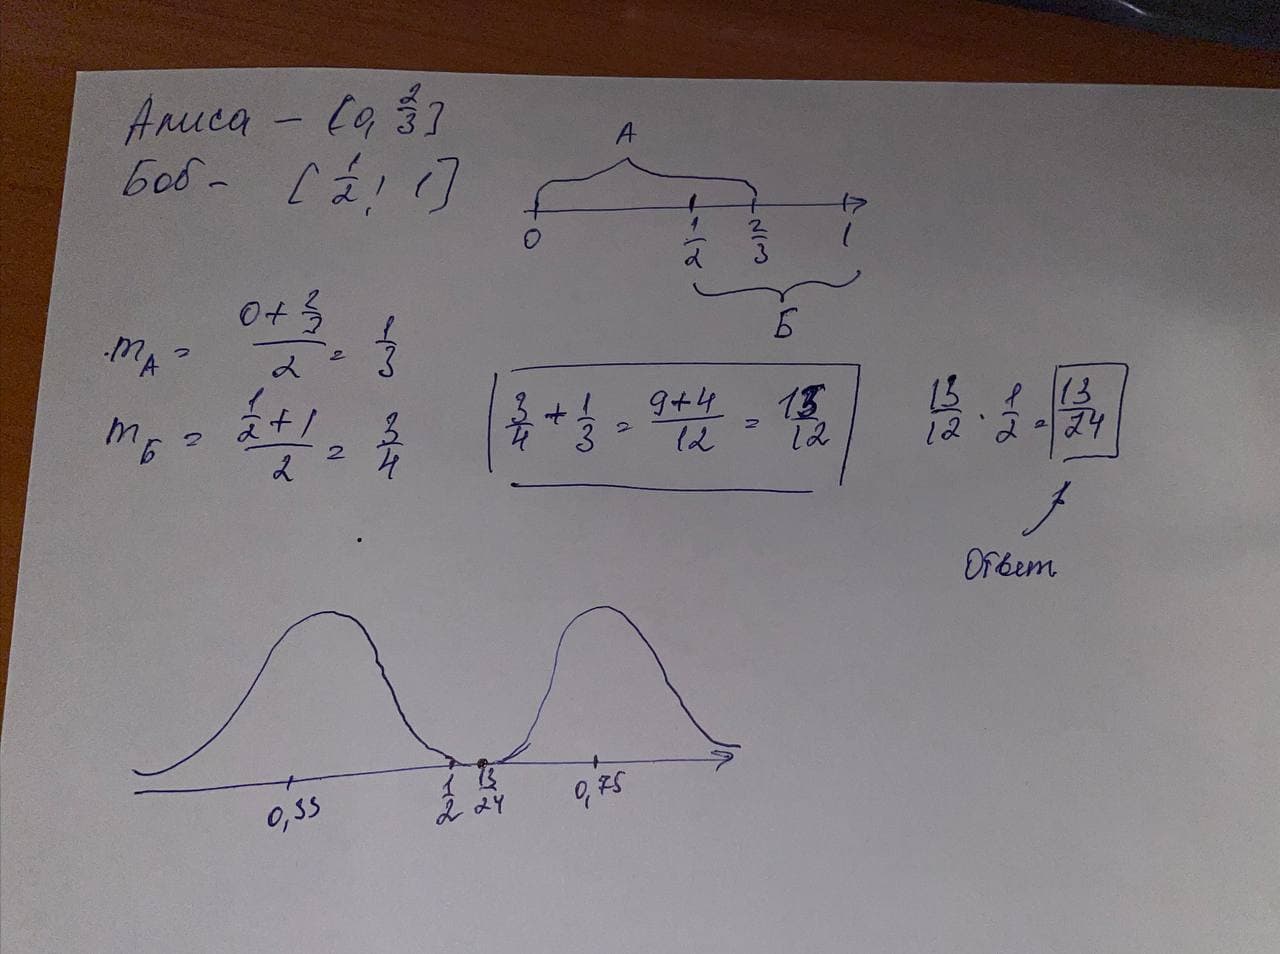 Алиса – [0, 2/3]
Боб – [1/2; 1]
A
0 1/2 2/3 1
Б
m_A = (0 + 2/3)/2 = 1/3
m_Б = (1/2 + 1)/2 = 3/4
3/4 + 1/3 = (9+4)/12 = 13/12
13/12 · 1/2 = 13/24
Ответ
0,33 1/2 13/24 0,75